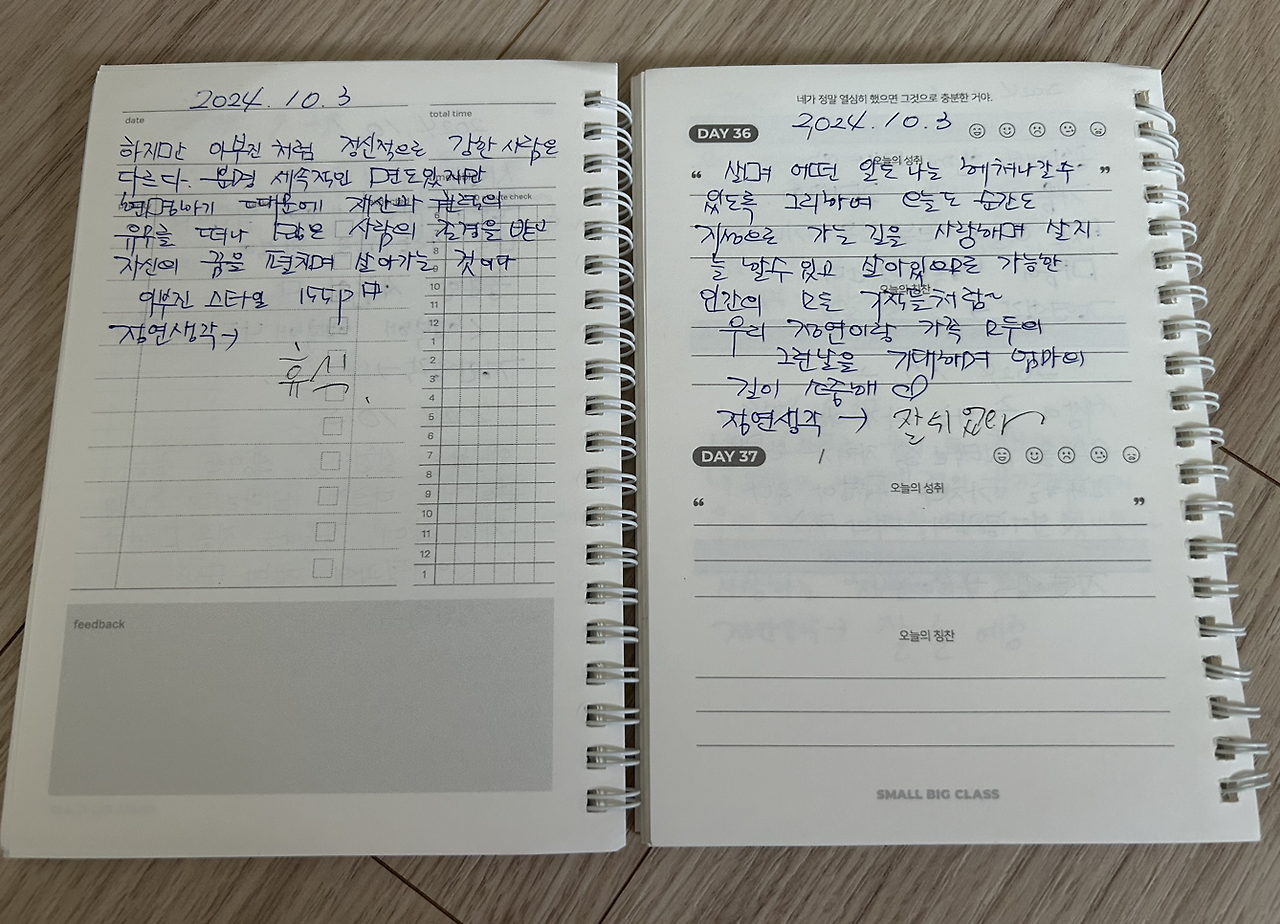 2024. 10. 3
date
total time
하지만 이부진 처럼 정신적으로 강한 사람은
다르다. 분명 세속적인 면도 있지만
현명하기 때문에 재산과 권력의
유무를 떠나 많은 사람의 존경을 받고
자신의 꿈을 펼치며 살아가는 것이다
이부진 스타일 157P
장연생각→
휴식
8
9
10
11
12
1
2
3
4
5
6
7
8
9
10
11
12
1
feedback
네가 정말 열심히 했으면 그것으로 충분한 거야.
DAY 36
2024. 10. 3
오늘의 성취
“ 살며 어떤 일도 나는 헤쳐나갈 수 ”
있도록 그리하여 오늘도 순간도
지성으로 가는 길을 사랑하며 살지
늘 할 수 있고 살아있으므로 가능한
오늘의 칭찬
인간의 모든 기적들처럼~
우리 장연이랑 가족 모두의
그런날을 기대하며 엄마의
길이 소중해 ♡
장연생각 → 잘 쉬었다
DAY 37
/
오늘의 성취
“ ”
오늘의 칭찬
SMALL BIG CLASS